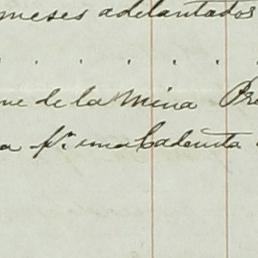 meses adelantados
. . . . . .
me de la Mina Pre
a pr. una Cadenita